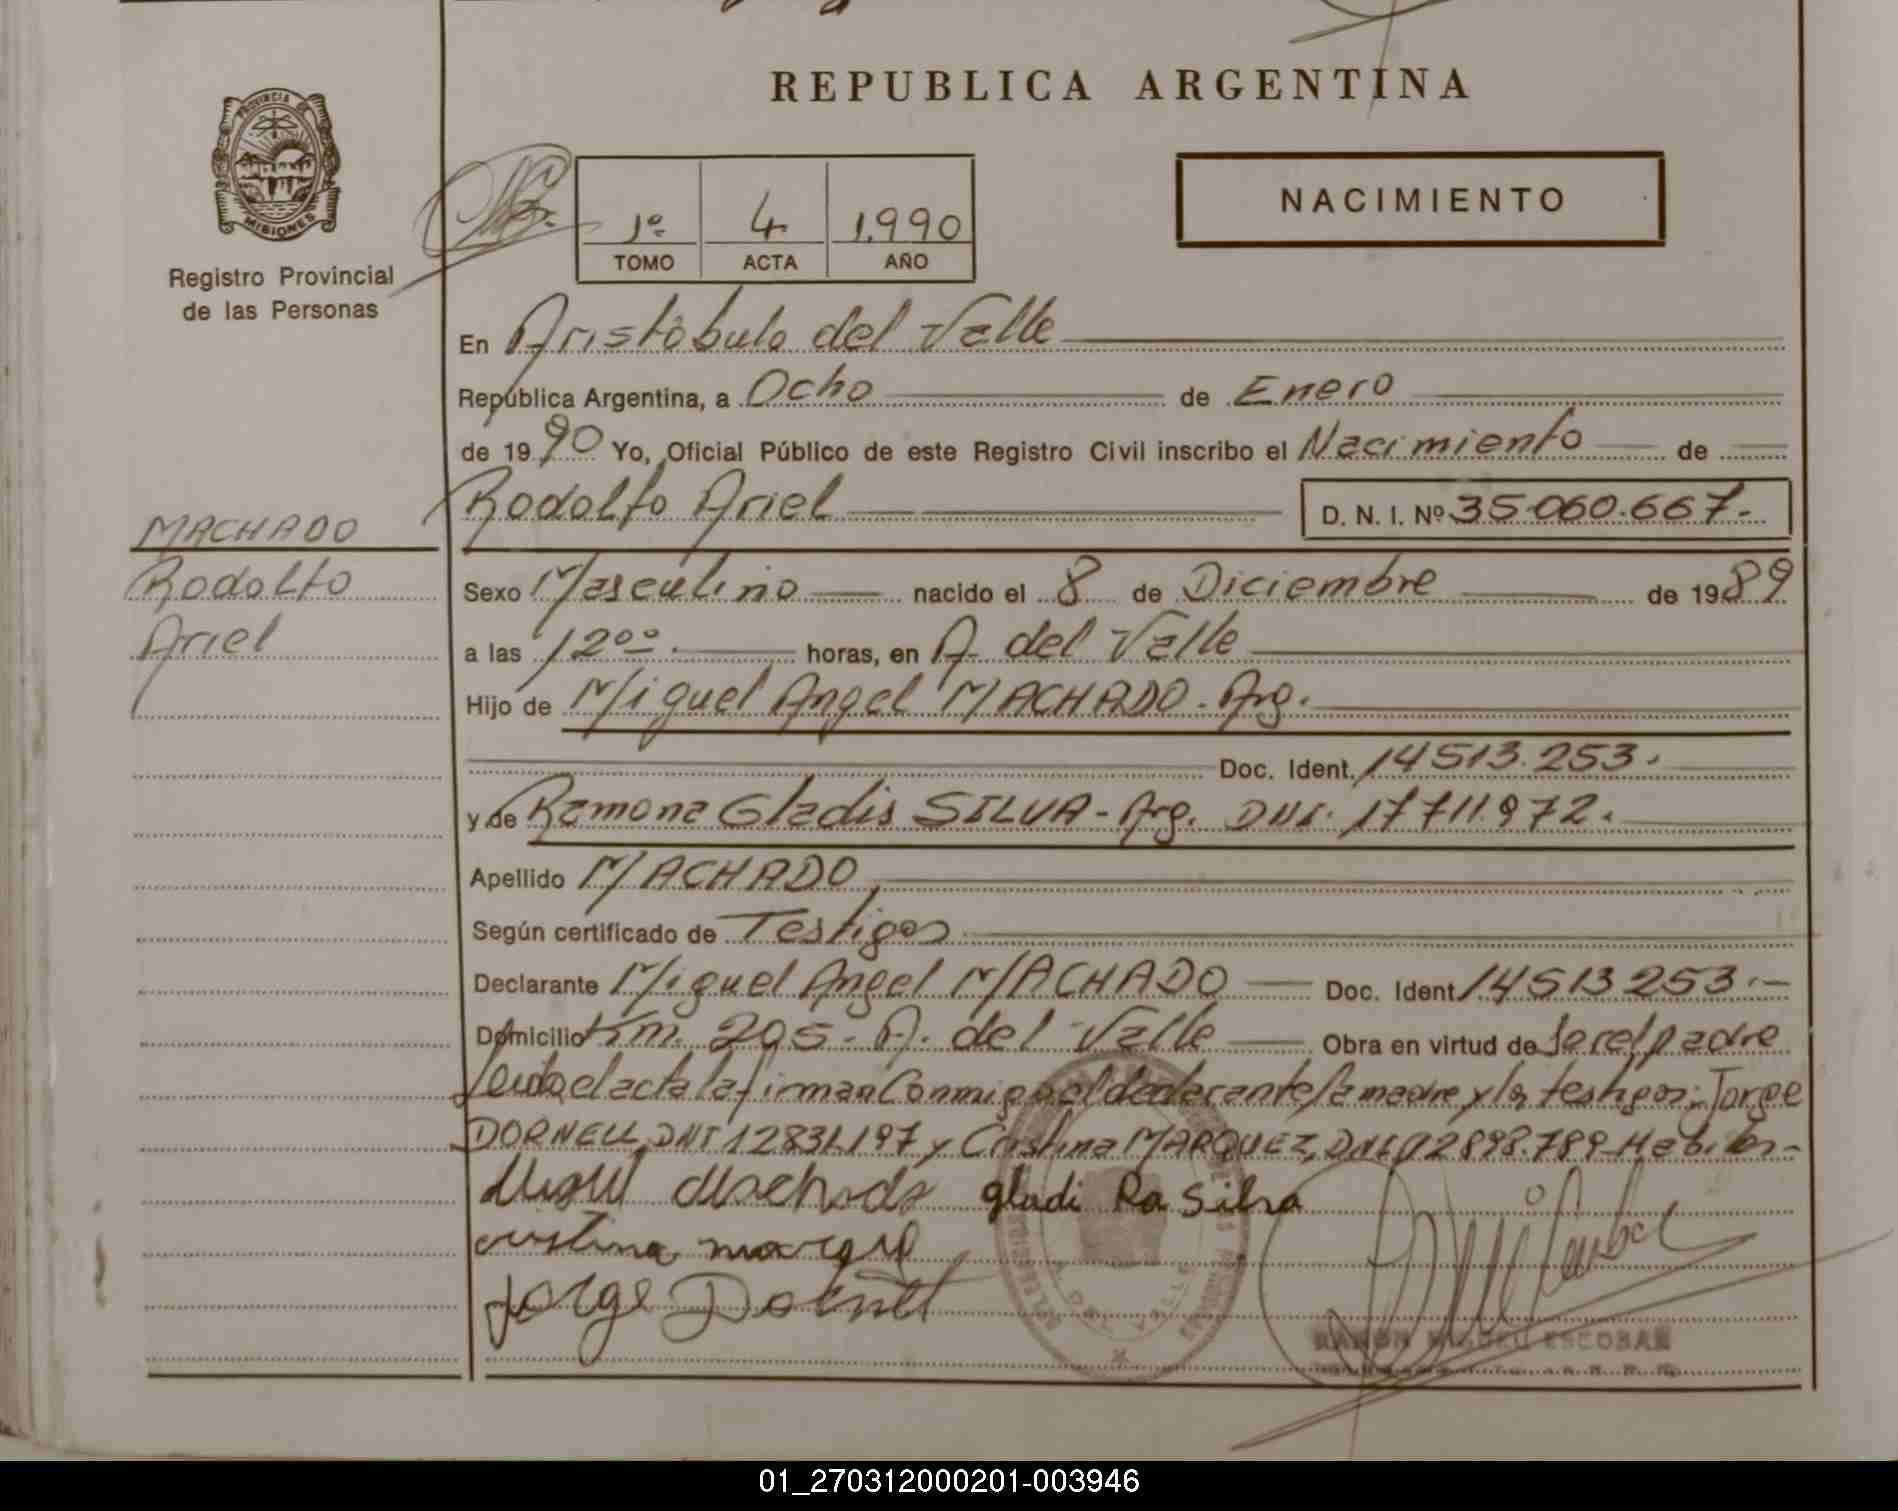 REPUBLICA ARGENTINA
PROVINCIA DE
MISIONES
Registro Provincial
de las Personas
1º 4 1.990
TOMO ACTA AÑO
NACIMIENTO
En Aristóbulo del Valle
República Argentina, a Ocho de Enero
de 1990 Yo, Oficial Público de este Registro Civil inscribo el Nacimiento de
Rodolfo Ariel D. N. I. Nº 35.060.667.-
MACHADO
Rodolfo
Ariel
Sexo Masculino nacido el 8 de Diciembre de 1989
a las 12ºº. horas, en A. del Valle
Hijo de Miguel Angel MACHADO. Arg.
Doc. Ident. 14513.253.
y de Ramona Gladis SILVA - Arg. DNI. 17711.972.
Apellido MACHADO
Según certificado de Testigos
Declarante Miguel Angel MACHADO Doc. Ident. 14513253.-
Domicilio Km. 205 - A. del Valle Obra en virtud de ser el padre
Leida el acta la firman Conmigo el declarante, la madre y los testigos: Jorge
DORNELL, DNI 12831.197 y Cristina MARQUEZ, DNI 12898.789 Habiles-
Miguel Machado gladi Ra Silva
cristina marque
Jorge Dornell
RAMON MIGUEL ESCOBAR
01_270312000201-003946